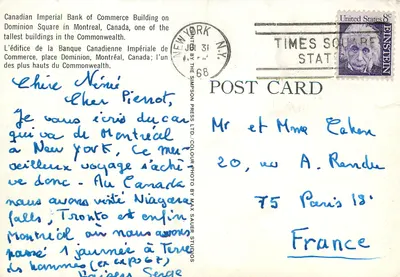 Canadian Imperial Bank of Commerce Building on
Dominion Square in Montreal, Canada, one of the
tallest buildings in the Commonwealth.
L'édifice de la Banque Canadienne Impériale de
Commerce, place Dominion, Montréal, Canada; l'un
des plus hauts du Commonwealth.
NEW YORK, N.Y.
31
68
TIMES SQUARE
STAT
8c
EINSTEIN
POST CARD
BY THE SIMPSON PRESS LTD. COLOUR PHOTO BY MAX SAUER STUDIOS
Chère Mémé
Cher Pierrot,
Je vous écris du car
qui va de Montréal
à New York. Ce mer-
veilleux voyage s'achè
ve donc. Au Canada
nous avons visité Niagara
falls, Toronto et enfin
Montréal où nous avons
passé 1 journée à Terre
des hommes (ex expo 67)
Baisers Serge
Mr et Mme Cohen
20, rue A. Renau
75 Paris 18.
France